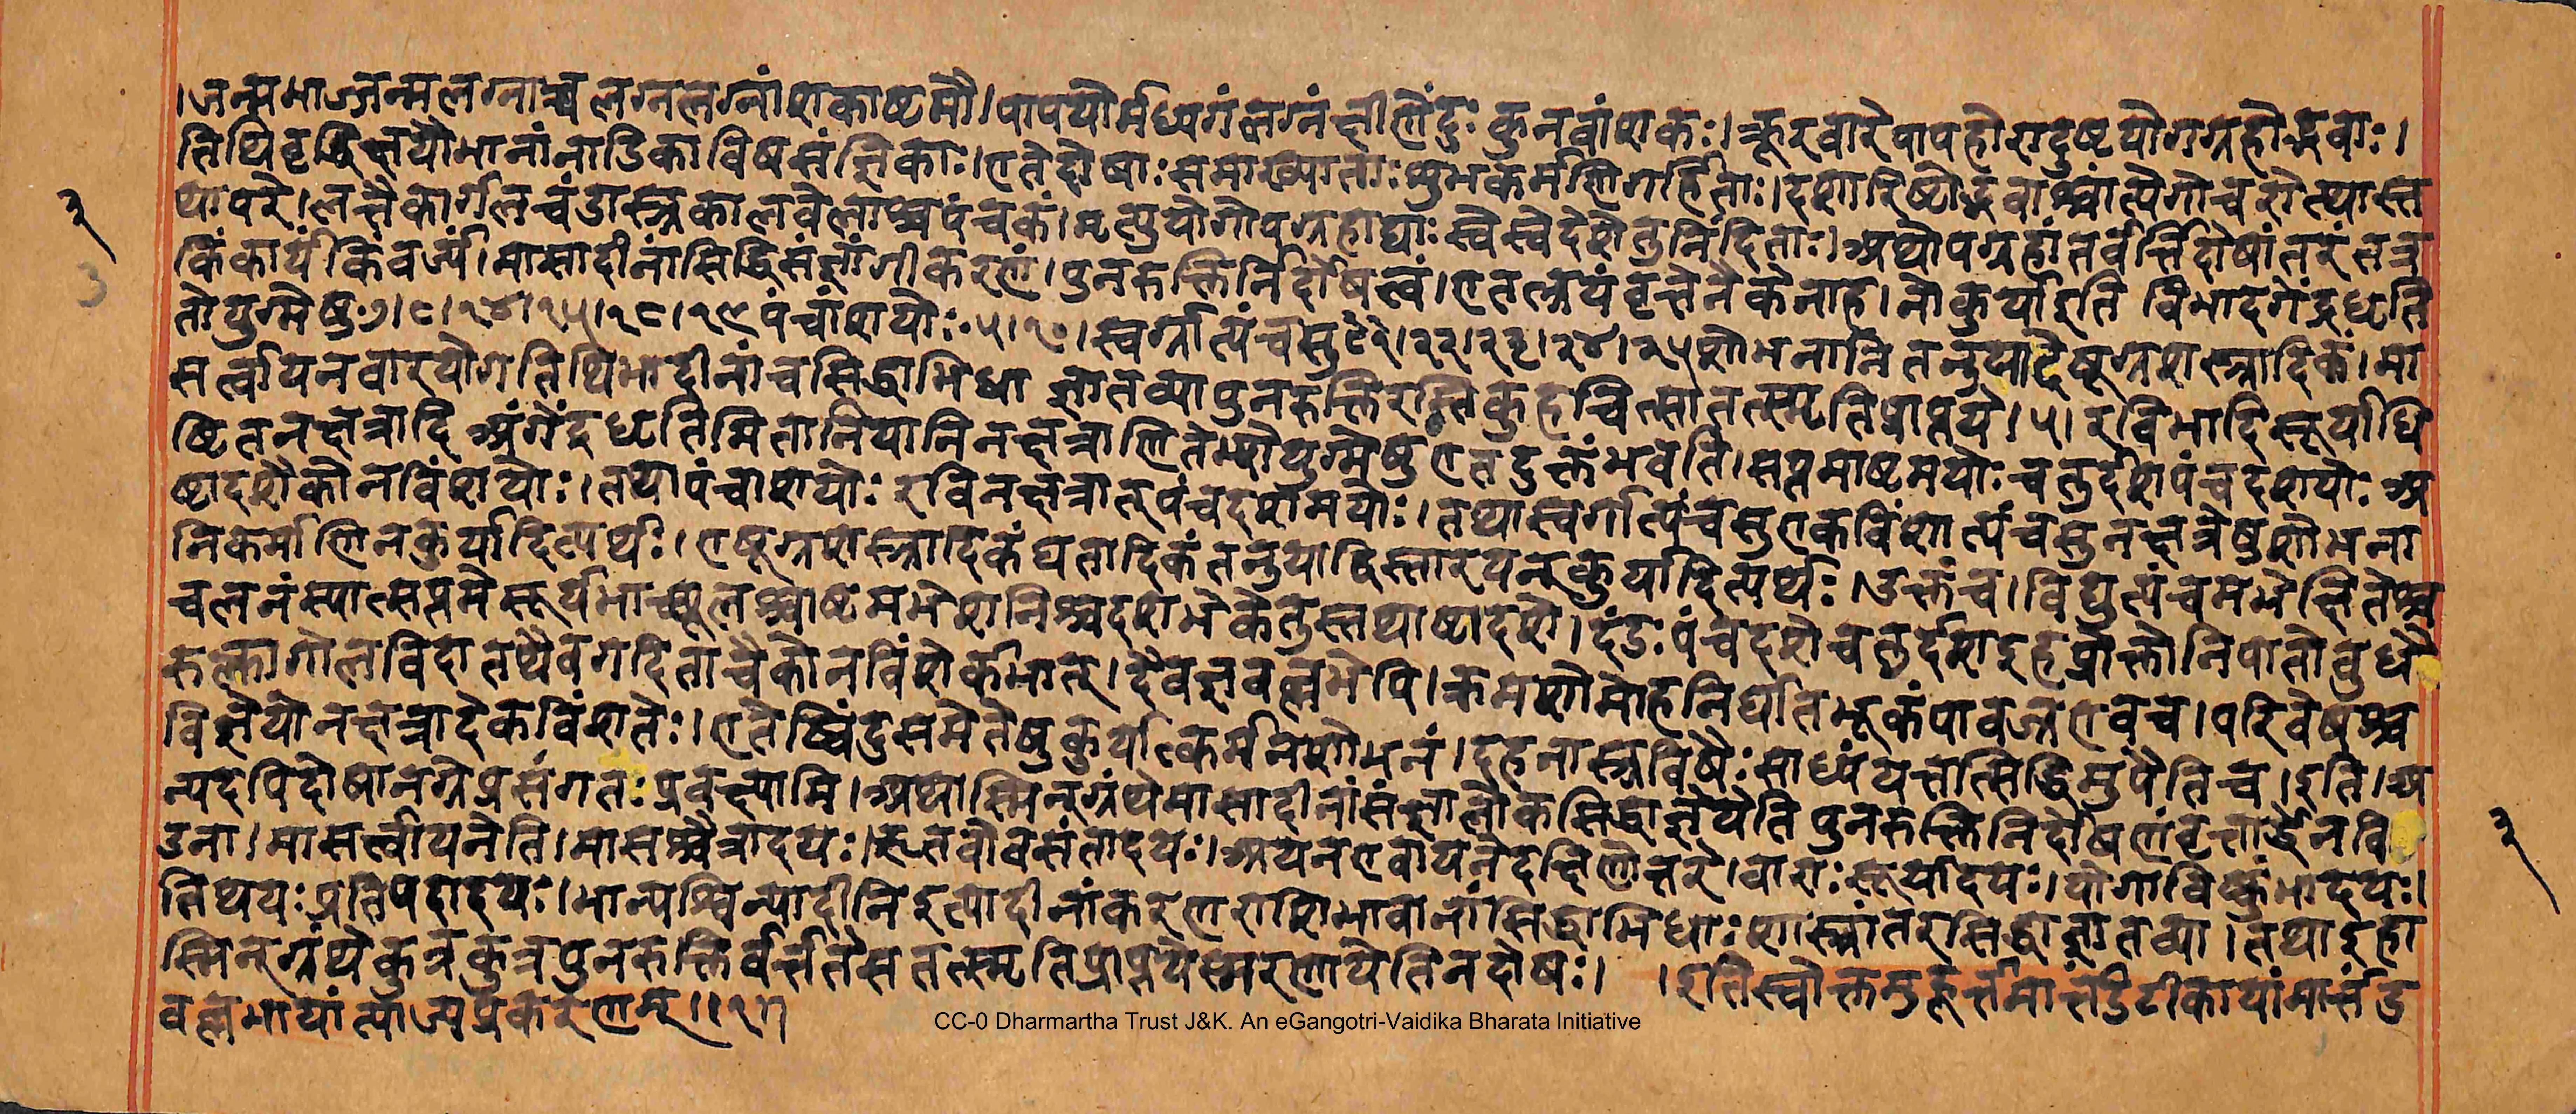 ।जन्मभाज्जन्मलग्नाच्च लग्नलग्नांशकाष्टमौ।पापयोर्मध्यगंलग्नंक्षीणेंदुः कुनवांशकः।क्रूरवारेपापहोरादुष्टयोगग्रहोद्भवाः।
तिथिवृद्धिक्षयौभानांनाडिकाविषसंज्ञिकाः।एतेदोषाःसमाख्याताःशुभकर्मणिगर्हिताः।दशारिष्टोद्भवाश्चात्येगोचरोत्थास्त
थापरे।लत्तैकार्गलचंडास्त्रकालवेलाश्चपंचकं।मृत्युयोगोपग्रहाद्याःस्वेस्वेदेशेतुनिंदिताः।अथोपग्रहांतर्वर्त्तिदोषांतरंतत्र
किंकार्यंकिंवर्ज्यं।मासादीनांसिद्धिसंज्ञांगीकरणं।पुनरुक्तिर्निर्दोषत्वं।एतत्त्रयंवृत्तेनैकेनाह।नोकुर्यादिति विभादगेंद्रधृति
तोयुग्मेषु७।८।१४।१५।१८।१९पंचांशयोः५।१०।स्वर्गात्पंचसु२१।२२।२३।२४।२५शोभनानि तनुयादेषूग्रशस्त्रादिकं।मा
सर्त्वायनवारयोगतिथिभादीनांचसिद्धाभिधा ज्ञातव्यापुनरुक्तिरस्तिकुहचित्सातत्स्मृतिप्राप्तये।५।रविभादिसूर्याधि
ष्टितनक्षत्रादि अंगेंद्रधृतिमितानियानिनक्षत्राणितेभ्योयुग्मेषुएतदुक्तंभवति।सप्तमाष्टमयोःचतुर्दशपंचदशयोःअ
ष्टादशैकोनविंशयोः।तथापंचाशयोः रविनक्षत्रात्पंचदशमयोः।तथास्वर्गात्पंचसुएकविंशात्पंचसुनक्षत्रेषुशोभना
निकर्माणिनकुर्यादित्यर्थः।एषूग्रशस्त्रादिकंघातादिकंतनुयाद्विस्तारयन्कुर्यादित्यर्थः।उक्तंच।विद्युत्पंचमभेक्षितेश्च
चलनंस्यात्सप्तमेसूर्यभाच्छूलश्चाष्टमभेशनिश्चदशभेकेतुस्तथाष्टादशे।दंडःपंचदशेचतुर्दशइहप्रोक्तौनिपातोबुधै
रुल्कागोलविदातथैवगदिताचैकोनविंशेर्कभात्।दैवज्ञवल्लभेपि।क्रमशोमोहनिर्घातभूकंपावज्रएवच।परिवेषश्च
विज्ञेयोनक्षत्रादेकविंशतेः।एतेष्विंदुसमेतेषुकुर्यात्कर्मनशोभनं।दहनास्त्रविषैःसाध्यंयत्तत्सिद्धिमुपैतिच।इति।अ
न्यदपिदोषानग्रेप्रसंगतःप्रवक्ष्यामि।अथास्मिन्ग्रंथेमासादीनांसंज्ञालोकसिद्धाज्ञेयेति पुनरुक्तिनिर्दोषणंवृत्तार्द्धेनवि
उना।मासर्त्वायनेति।मासश्चैत्रादयः।ऋतवोवसंतादयः।अयनएवायनेदक्षिणोत्तरे।वाराःसूर्यादयः।योगाविष्कुंभादयः।
तिथयःप्रतिपदादयः।भान्यश्विन्यादीनिइत्यादीनांकरणराशिभावानांसिद्धाभिधाःशास्त्रांतरसिद्धाज्ञातव्या।तथाइहा
स्मिन्ग्रंथेकुत्रकुत्रपुनरुक्तिर्वर्त्ततेसतत्स्मृतिप्राप्तयेस्मरणायेतिनदोषः। ।इतिस्वोक्तमुहूर्त्तमार्त्तंडटीकायांमार्त्तंड
वल्लभायांत्याज्यप्रकरणम्॥१॥
३
३
CC-0 Dharmartha Trust J&K. An eGangotri-Vaidika Bharata Initiative